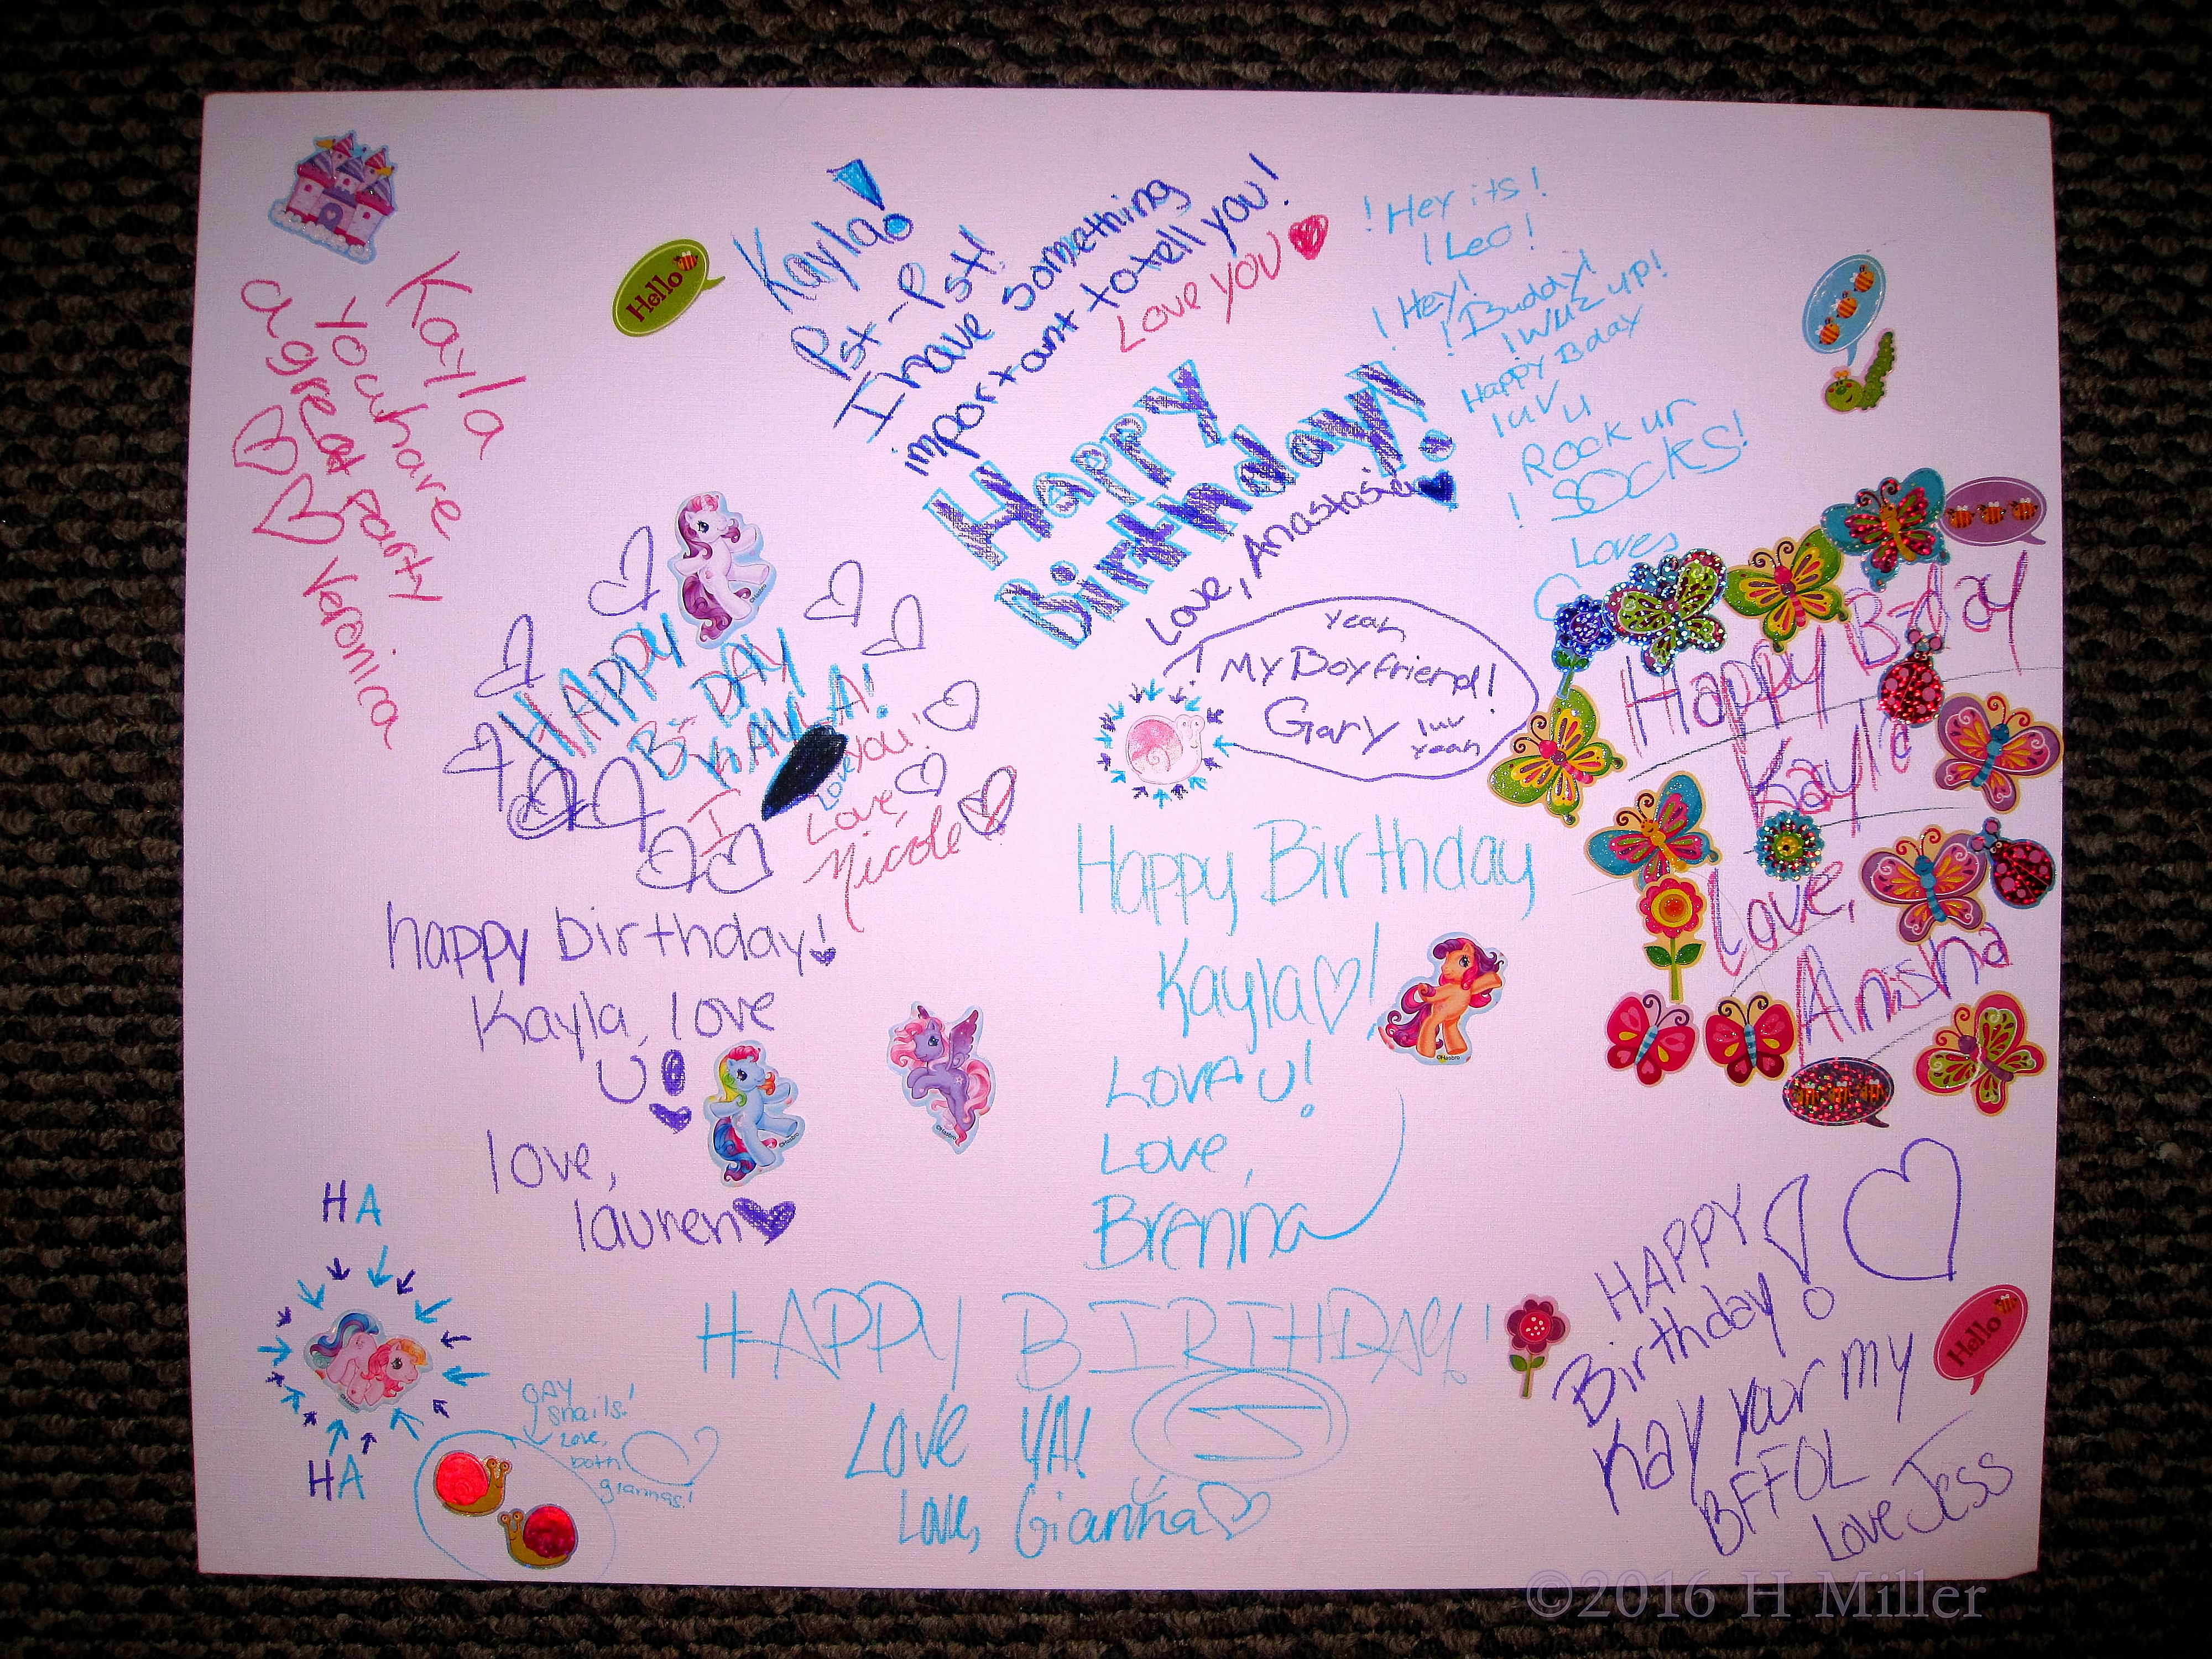 Kayla
you have
a great party
Veronica
Hello
Kayla!
Pst-Pst!
I have something
important to tell you!
Love YOU
Happy
Birthday!
Love, Anastasia
! Hey its !
! Leo !
! Hey!
! Buddy!
! WUZ UP!
Happy Bday
luv u
Rock ur
! SOCKS!
Loves
HAPPY
B-DAY
KAYLA!
I
Love YOU!
Love,
Nicole
Yeah
! My Boyfriend!
Gary luv
yeah
Happy B-day
Kayla
Love,
Anisha
happy birthday!
Kayla, love
U!
love,
lauren
Happy Birthday
Kayla!
Love u!
Love,
Brenna
HA
HA
GAY
snails!
Love,
both
giannas!
HAPPY BIRTHDAY!
LOVE YA!
Love, Gianna
HAPPY
Birthday!
Kay your my
BFFOL
Love Jess
Hello
©Hasbro
©2016 H Miller